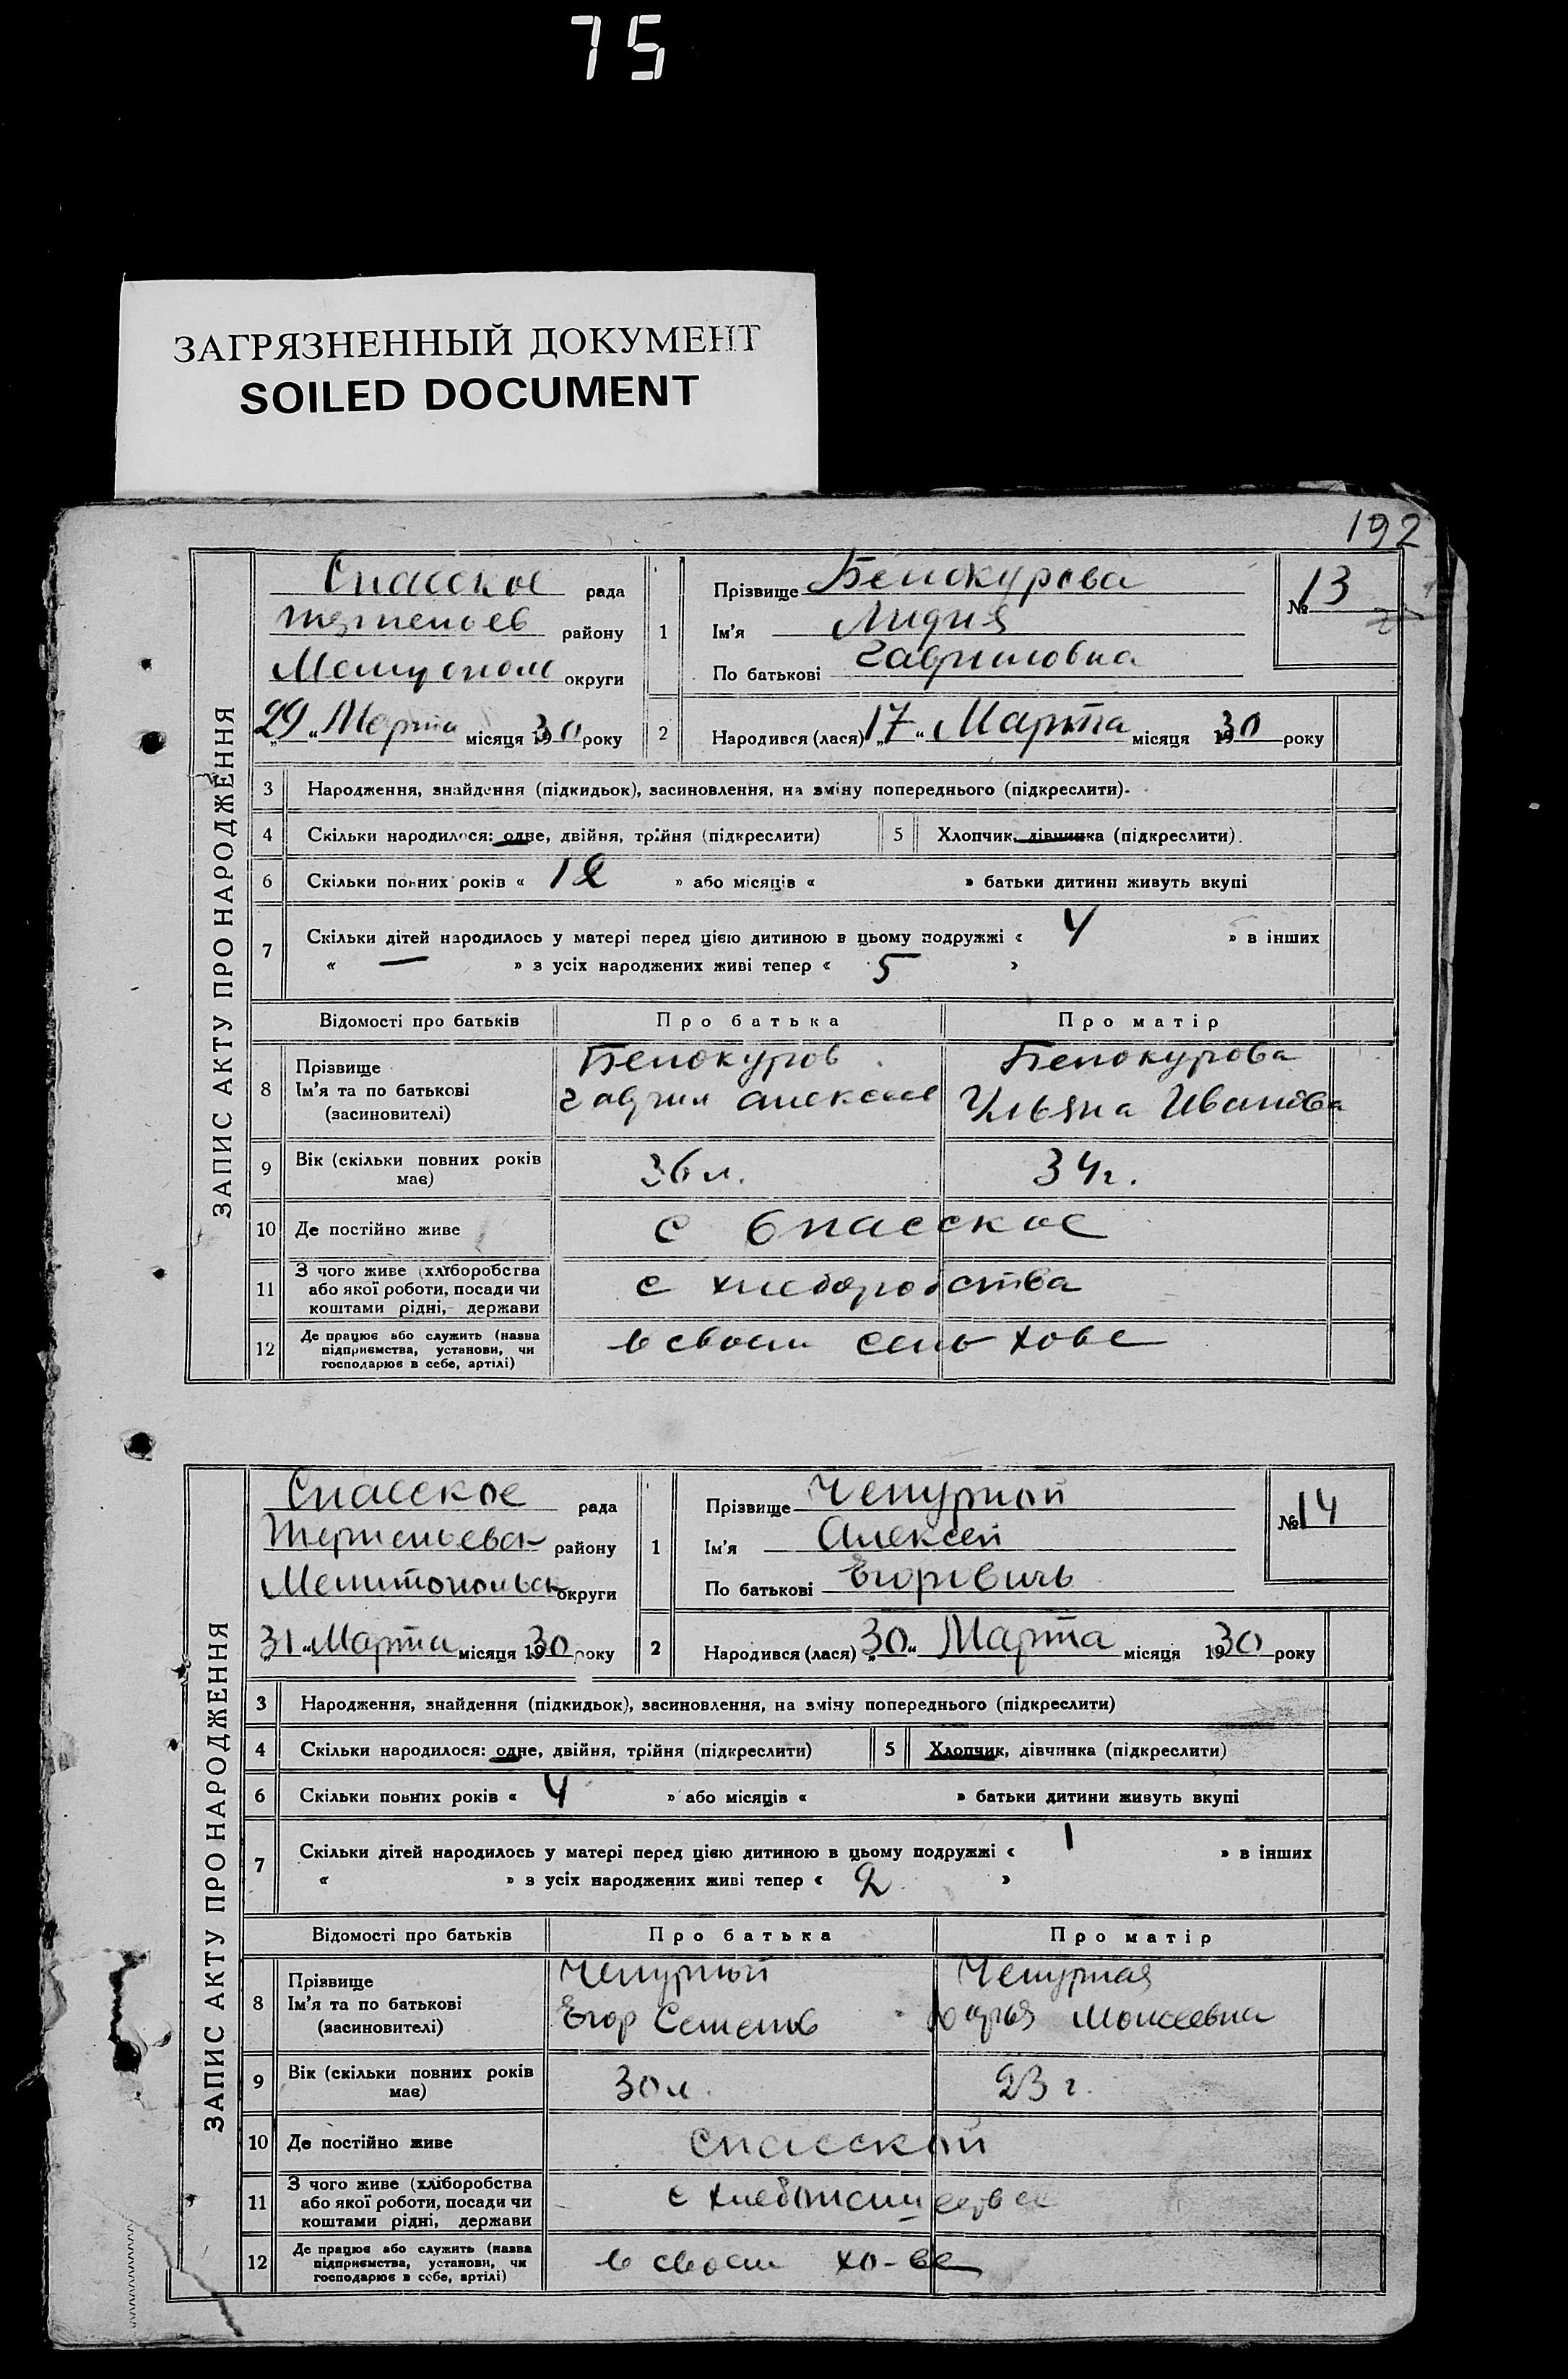 75
ЗАГРЯЗНЕННЫЙ ДОКУМЕНТ
SOILED DOCUMENT
192
ЗАПИС АКТУ ПРО НАРОДЖЕННЯ
Спасское рада
района
округи
29 „ Марта місяця 1930 року
1 Прізвище Белокурова
Ім'я Лидия
По батькові Гавриловна
№ 13
2 Народився (лася) „17“ Марта місяця 1930 року
3 Народження, знайдення (підкидьок), засиновлення, на зміну попереднього (підкреслити).
4 Скільки народилося: одне, двійня, трійня (підкреслити) 5 Хлопчик, дівчинка (підкреслити).
6 Скільки повних років « 12 » або місяців « » батьки дитини живуть вкупі
7 Скільки дітей народилось у матері перед цією дитиною в цьому подружжі « 4 » в інших
« — » з усіх народжених живі тепер « 5 »
Відомості про батьків Про батька Про матір
8 Прізвище Белокуров Белокурова
Ім'я та по батькові Гаврил Алексеев Ульяна Иванова
(засиновителі)
9 Вік (скільки повних років має) 36 л. 34 г.
10 Де постійно живе с Спасское
11 З чого живе (хліборобства або якої роботи, посади чи коштами рідні, держави с хлеборобства
12 Де працює або служить (назва підприємства, установи, чи господарює в себе, артілі) в своем сель хове
ЗАПИС АКТУ ПРО НАРОДЖЕННЯ
Спасское рада
району
Мелитопольск округи
31 „ Марта місяця 1930 року
1 Прізвище Чепурной
Ім'я Алексей
По батькові Егорович
№ 14
2 Народився (лася) „30“ Марта місяця 1930 року
3 Народження, знайдення (підкидьок), засиновлення, на зміну попереднього (підкреслити)
4 Скільки народилося: одне, двійня, трійня (підкреслити) 5 Хлопчик, дівчинка (підкреслити)
6 Скільки повних років « 4 » або місяців « » батьки дитини живуть вкупі
7 Скільки дітей народилось у матері перед цією дитиною в цьому подружжі « 1 » в інших
« » з усіх народжених живі тепер « 2 »
Відомості про батьків Про батька Про матір
8 Прізвище Чепурный Чепурная
Ім'я та по батькові Егор Семенов Моисеевна
(засиновителі)
9 Вік (скільки повних років має) 30 л. 23 г.
10 Де постійно живе Спасской
11 З чого живе (хліборобства або якої роботи, посади чи коштами рідні, держави с
12 Де працює або служить (назва підприємства, установи, чи господарює в себе, артілі) в своем хо-ве